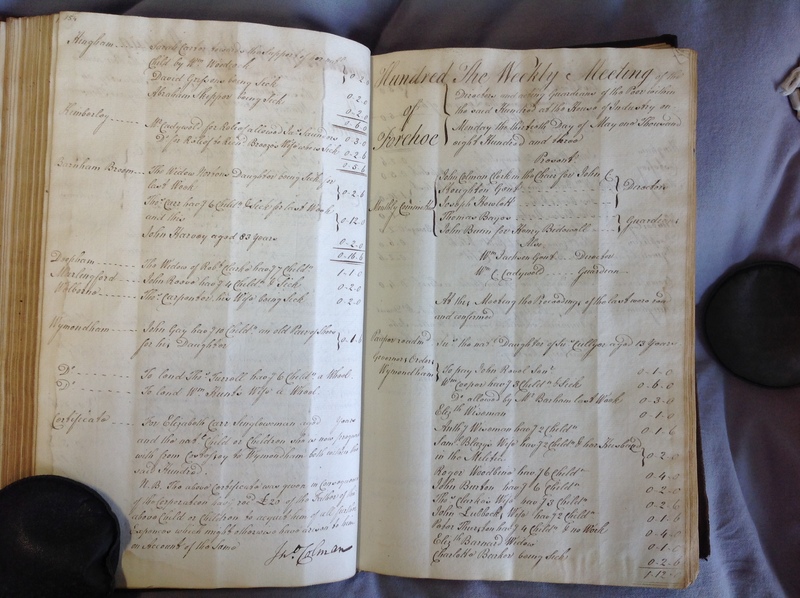 Hingham
Child by Wm Woodcock
David Griggs being Sick 0-2-0
Abraham Skipper being Sick 0-2-0
0-2-0
0-6-0
Kimberley
Mr Cadywold for Relief allowed 0-3-0
Do for Relief to Wife when Sick 0-2-6
0-5-6
Barnham Broom The Widow Nortons Daughter being Sick for
last Week 0-2-6
Carr has 6 Childn & Sick for last Week
and this 0-12-0
John Harvey aged 83 Years 0-2-0
0-16-6
Deopham The Widow of Robt Clarke has 7 Childn 1-1-0
Marlingford John Reeve has 4 Childn & Sick 0-2-0
Welborne Thos Carpenter his Wife being Sick 0-2-0
Wymondham John Gay has 10 Childn an old Pair of Shoes
for his Daughter 0-1-6
Do To lend Thos Turrell has 6 Childn a Wheel
Do To lend Wm Hunts Wife a Wheel
Certificate For Elizabeth Carr Singlewoman aged Years
and the Child or Children she is now pregnant
with from Costessey to Wymondham both within the
said Hundred
N.B. The above Certificate was given in consequence
of the Corporation £20 of the Father of the
above Child or Children to acquit them of all further
expences which might otherwise have arisen to them
on Account of the same
Jno Colman
Hundred
of
Forehoe
The Weekly Meeting of the
Directors and acting Guardians of the Poor within
the said Hundred at the House of Industry on
Monday the thirtieth Day of May one Thousand
eight Hundred and three
Present
Weekly Committee
John Colman Clerk in the Chair for John
Houghton Gent
Joseph Howlett
Directors
Thomas Bayes
John Bunn for Henry Bidwell
Guardians
Also
Wm Jackson Gent Director
Wm C Cadywold Guardian
At this Meeting the Proceedings of the last were read
and confirmed
Daughter of aged 13 Years
Wymondham
To pay John Raval Senr 0-1-0
Wm Cooper has 3 Childn & Sick 0-6-0
Do allowed by Mr Barham last Week 0-3-0
Elizth Wiseman 0-1-0
Anthy Wiseman has 2 Childn 0-1-6
Saml Blazys Wife has 2 Childn & her Husband
in the Militia 0-2-0
Roger Woodbine has 6 Childn 0-4-0
John Burton has 6 Childn 0-2-0
Thos Clarkes Wife has 3 Childn 0-2-6
John Lubbock Wife has 2 Childn 0-1-6
Peter Thurston has 4 Childn & no Work 0-4-0
Elizth Barnard Widow 0-1-0
Charlotte Barker being Sick 0-2-6